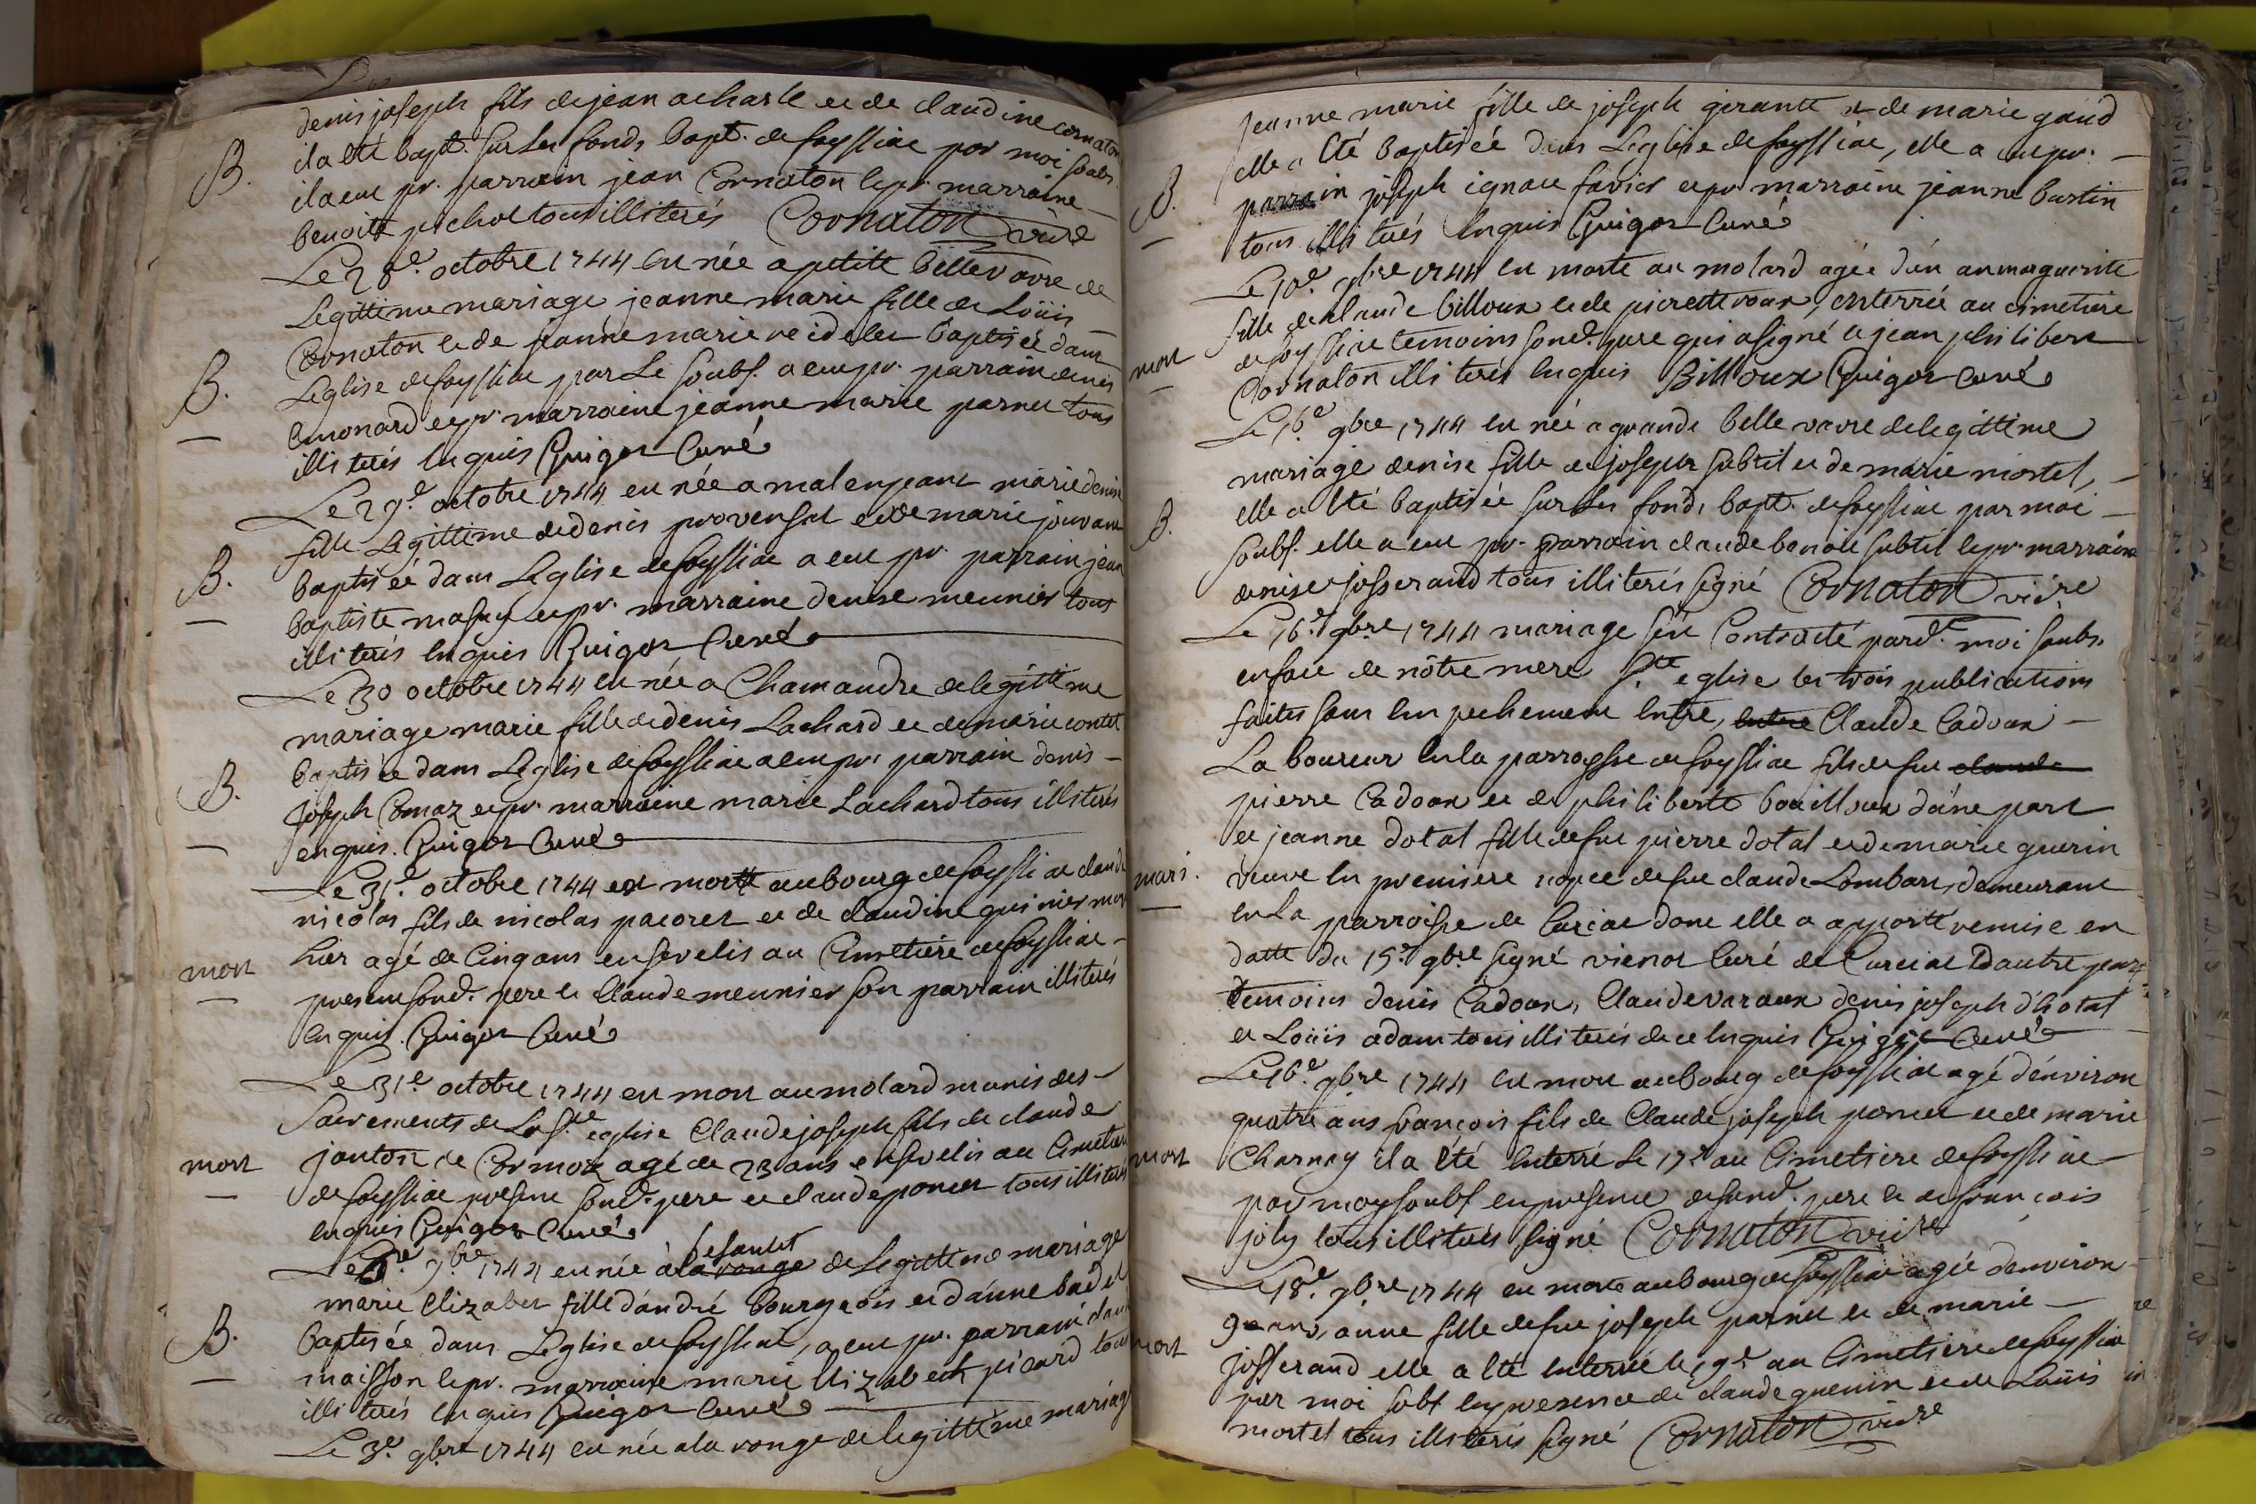 denis joseph fils de jean acharle et de claudine cornaton
B. il a été bapt. sur les fonds bapt. de foyssiac par moi soubs.
il a eut pr. parrain jean Cornaton et pr. marraine
benoite pichot tous illiterés Cornaton vicre
Le 28e octobre 1744 est née a petite bellevavre de
Legittime mariage jeanne marie fille de Loüis
B. Cornaton et de jeanne marie baptisée dans
Leglise de foyssiac par Le soubs. a eu pr. parrain denis
emonard et pr. marraine jeanne marie parnet tous
illiterés enquis Guigoz Curé
Le 29e octobre 1744 est née a malenjeant marie denise
fille Legittime de denis provensat et de marie jouvant
B. baptisée dans Leglise de foyssiac a eut pr. parrain jean
baptiste et pr. marraine denise meunier tous
illiterés enquis Guigoz Curé
Le 30 octobre 1744 est née a Chamandre de legittime
mariage marie fille de denis Lachard et de marie contet
B. baptisée dans Leglise de foyssiac a eu pr. parrain denis
joseph et pr. marraine marie Lachard tous illiterés
enquis. Guigoz Curé
Le 31e octobre 1744 est mort au bourg de foyssiac claude
nicolas fils de nicolas pacoret et de claudine
mort hier agé de Cinq ans ensevelis au Cimetiere de foyssiac
present sond. pere et Claude meunier son parrain illiterés
enquis. Guigoz Curé
Le 31e octobre 1744 est mort au molard munis des
sacrements de La Ste eglise Claude joseph fils de claude
mort janton de Cormoz agé de 23 ans ensevelis au Cimetiere
de foyssiac present sond. pere et claude poncet tous illiterés
enquis Guigoz Curé
besantet
Le 1er 9bre 1744 est née à la ronge de Legittime mariage
marie elizabet fille d'andré bourgeois et d'anne badet
B. baptisée dans Leglise de foyssiat, a eut pr. parrain claude
maisson et pr. marraine marie Elizabeth picard tous
illiterés enquis Guigoz Curé
Le 3e 9bre 1744 est née a la ronge de legittime mariage
jeanne marie fille de joseph gerante et de marie gaud
B. elle a été baptisée dans Leglise de foyssiac, elle a eu pr.
parrain joseph ignace favier et pr. marraine jeanne bastin
tous illiterés enquis Guigoz Curé
Le 10e 9bre 1744 est morte au molard agée d'un an marguerite
fille de claude billoux et de pierette roux, enterrée au cimetiere
mort de foyssiac temoins sond. pere qui a signé et jean philibert
Cornaton illiterés enquis Billoux Guigoz Curé
Le 16e 9bre 1744 est née a grande bellevavre de legittime
mariage denise fille de joseph subtil et de marie mortel,
B. elle a été baptisée sur les fonds bapt. de foyssiac par moi
soubs. elle a eut pr. parrain claude benoit subtil et pr. marraine
denise josserand tous illiterés signé Cornaton vicre
Le 16e 9bre 1744 mariage feut Contracté pard. moi soubs.
en face de nôtre mere Ste eglise les trois publications
faites sans empechement entre, entre Claude Cadoux
La boureur en la parroysse de foyssiac fils de feu claude
pierre Cadoux et de philiberte bouilloux d'une part
et jeanne dotal fille de feu pierre dotal et de marie guerin
mari. veuve en premiere nopce de feu claude Lombart, demeurant
en la parroisse de Curciac donc elle a apporté remise en
datte du 15e 9bre signé vienot Curé de Curciat D'autre part
temoins denis Cadoux, Claude varaux denis joseph d'hotal
et Loüis adam tous illiterés de ce enquis Guigoz Curé
Le 16e 9bre 1744 est mort au bourg de foyssiac agé d'environ
quatre ans françois fils de Claude joseph poncet et de marie
mort Charnay il a été enterré Le 17e au Cimetiere de foyssiac
par moy soubs en presence de sond. pere et de françois
joly tous illiterés signé Cornaton vicre
Le 18e 9bre 1744 est morte au bourg de foyssiac agée d'environ
9 ans, anne fille de feu joseph parnet et de marie
mort josserand elle a été enterrée le 19e au Cimetiere de foyssiac
par moi sobs en presence de claude guenin et de Loüis
mortel tous illiterés signé Cornaton vicre